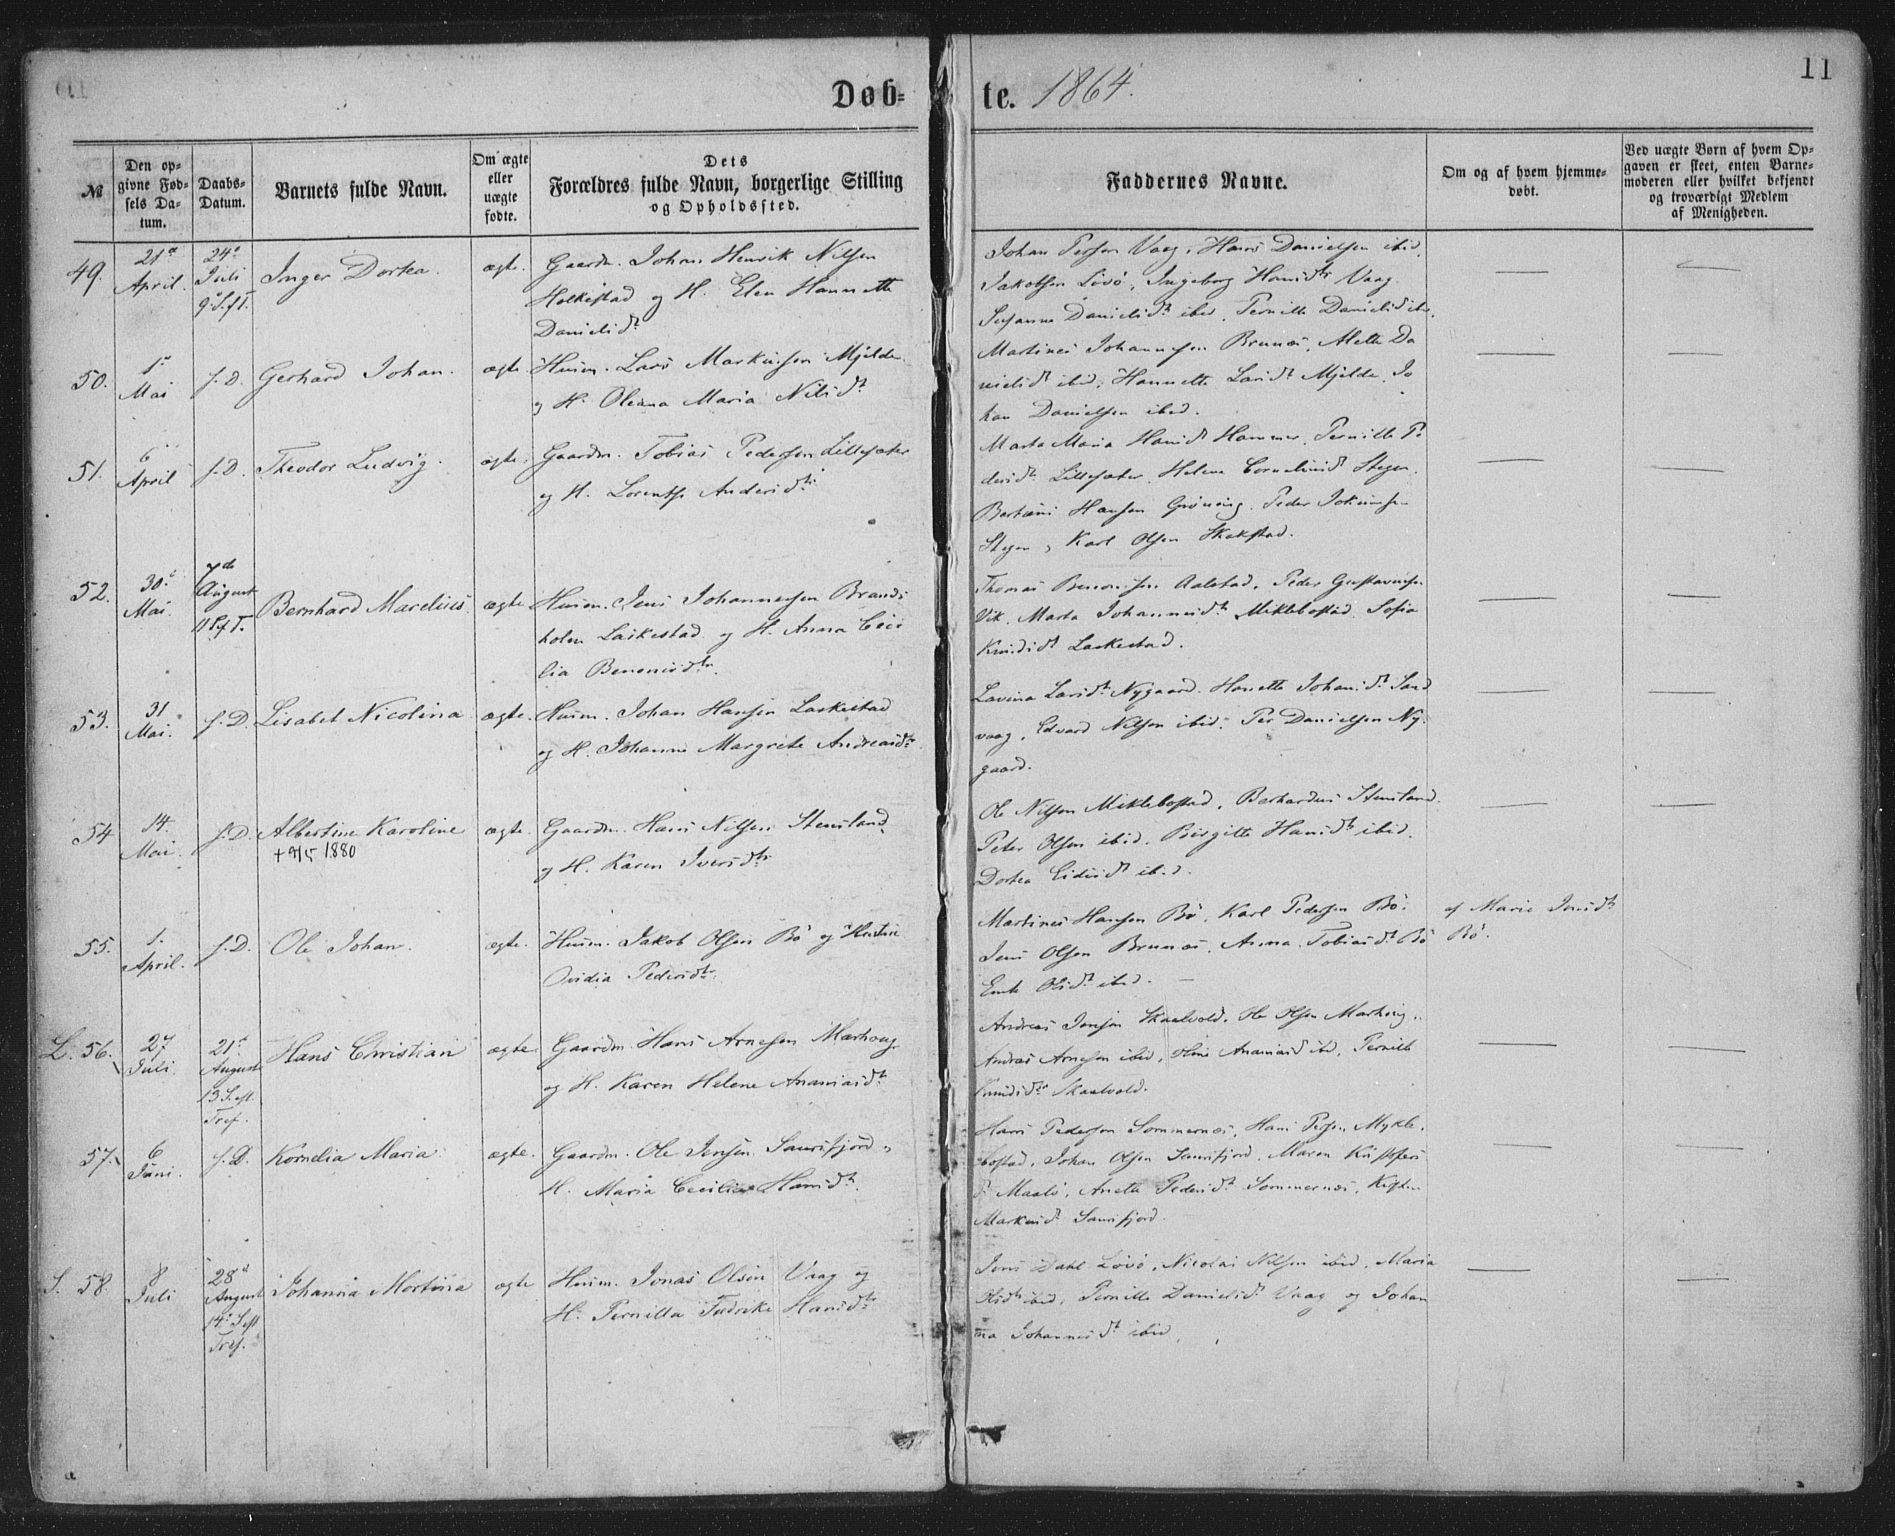 11
Døb=
te. 1864.
№
Den op=
givne Fød=
sels Da=
tum.
Daabs=
Datum.
Barnets fulde Navn.
Om ægte
eller
uægte
fødte.
Dets
Forældres fulde Navn, borgerlige Stilling
og Opholdssted.
Faddernes Navne.
Om og af hvem hjemme=
døbt.
Ved uægte Børn af hvem Op=
gaven er skeet, enten Barne=
moderen eller hvilket bekjendt
og troværdigt Medlem
af Menigheden.
49.
21de
April.
24de
Juli
9. S. f T.
Inger Dortea.
ægte.
Gaardm. Johan Henrik Nilsen
Holkestad og H. Elen Hannette
Danielsdt
Johan Person Vaag, Hans Danielsen ibid,
Jakobsen Lövö, Ingeborg Hansdtr Vaag.
Susanne Danielsdt ibid, Pernille Danielsd ibid.
50.
1te
Mai
s. D.
Gerhard Johan.
ægte.
Huusm. Lars Markussen Mjelde.
og H. Oleana Maria Nilsdt
Martines Johannesen Brunæs, Alette Da
nielsdt ibid, Hannette Larsdt Mjelde, Jo
han Danielsen ibid.
51.
6
April
s. D.
Theodor Ludvig.
ægte.
Gaardm. Tobias Pedersen Lillesæter
og H. Lorentse Andersdtr
Marta Maria Hansdt Hammer, Pernille Pe
dersdt Lillesæter, Helene Corneliusdt Stegen.
Hansen Grönning, Peder Jokumsen
Stegen, Karl Olsen Skotstad.
52.
30te
Mai.
7de
August
11 S. f T.
Bernhard Marelius.
ægte
Huusm. Jens Johannesen Brands
holm Laskestad og H. Anna Ceci
lia Benonisdtr.
Thomas Benonisen Aalstad, Peder Gustavusen
Vik, Marta Johannesdtr Miklebostad, Sofia
Knudsdt Laskestad.
53.
31
Mai.
s. D.
Lisabet Nicolina
ægte.
Huusm. Johan Hansen Laskestad
og H. Johanne Margrete Andreasdtr
Lavina Larsdtr Nygaard, Hanette Johansdt Sand
vaag, Edvard Nilsen ibid. Per Danielsen Ny-
gaard.
54
14.
Mai.
s. D.
Albertine Karoline
+ 9/5 1880
ægte.
Gaardm. Hans Nilsen Stensland,
og H. Karen Iversdtr
Ole Nilsen Miklebostad, Stensland.
Peter Olsen ibid. Birgitte Hansdtr ibid.
Dortea ibid.
55.
1.
April.
s. D.
Ole Johan.
ægte.
Huusm. Jakob Olsen Bö og Hustru
Ovidia Pedersdtr.
Martines Hansen Bö, Karl Pedersen Bö.
Jens Olsen Brunæs, Anna Tobiasdt Bö
Olsdt ibid.
af Marie Jensdtr
Bö.
L. 56.
27
Juli.
21de
August
13 S. eft.
Tref.
Hans Christian
ægte.
Gaardm. Hans Arnesen Marhoug
og H. Karen Helene Ananiasdtr
Andreas Jensen Skaalvold, Ole Olsen Marhoug,
Andreas Arnesen ibid, Oline Ananiasd ibid, Pernille
Knudsdtr Skaalvold.
57.
6
Juni.
s. D.
Kornelia Maria.
ægte.
Gaardm. Ole Jensen Saursfjord,
H. Maria Cecilia Hansdt.
Hans Pedersen Sommernæs, Hans Persen Mykle-
bostad, Johan Olsen Saursfjord, Maren Kristofers
dt Maalö, Anetta Pedersdt Sommernæs,
Markusdt Saursfjord.
S. 58.
8
Juli
28de
August
14. S. eft
Tref.
Johanna Martina
ægte
Huusm. Jonas Olsen Vaag og
H. Pernilla Fredrike Hansdtr
Jens Dahl Lövö, Nicolai Nilsen ibid, Maria
Olsdtr ibid, Pernille Danielsdt Vaag og Johan
na Johannesdt ibid.